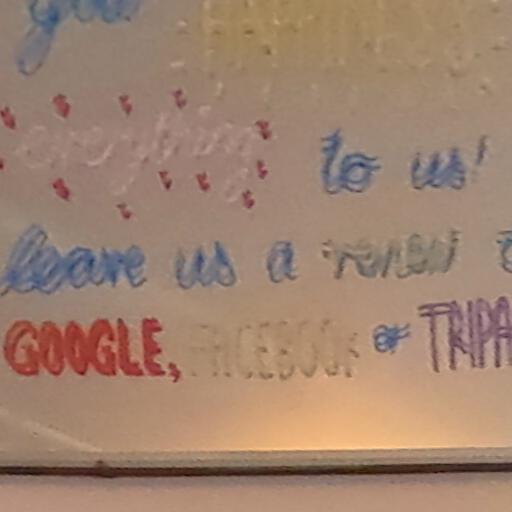 your HAPPINESS
everything to us!
leave us a review
GOOGLE, FACEBOOK or TRIPA